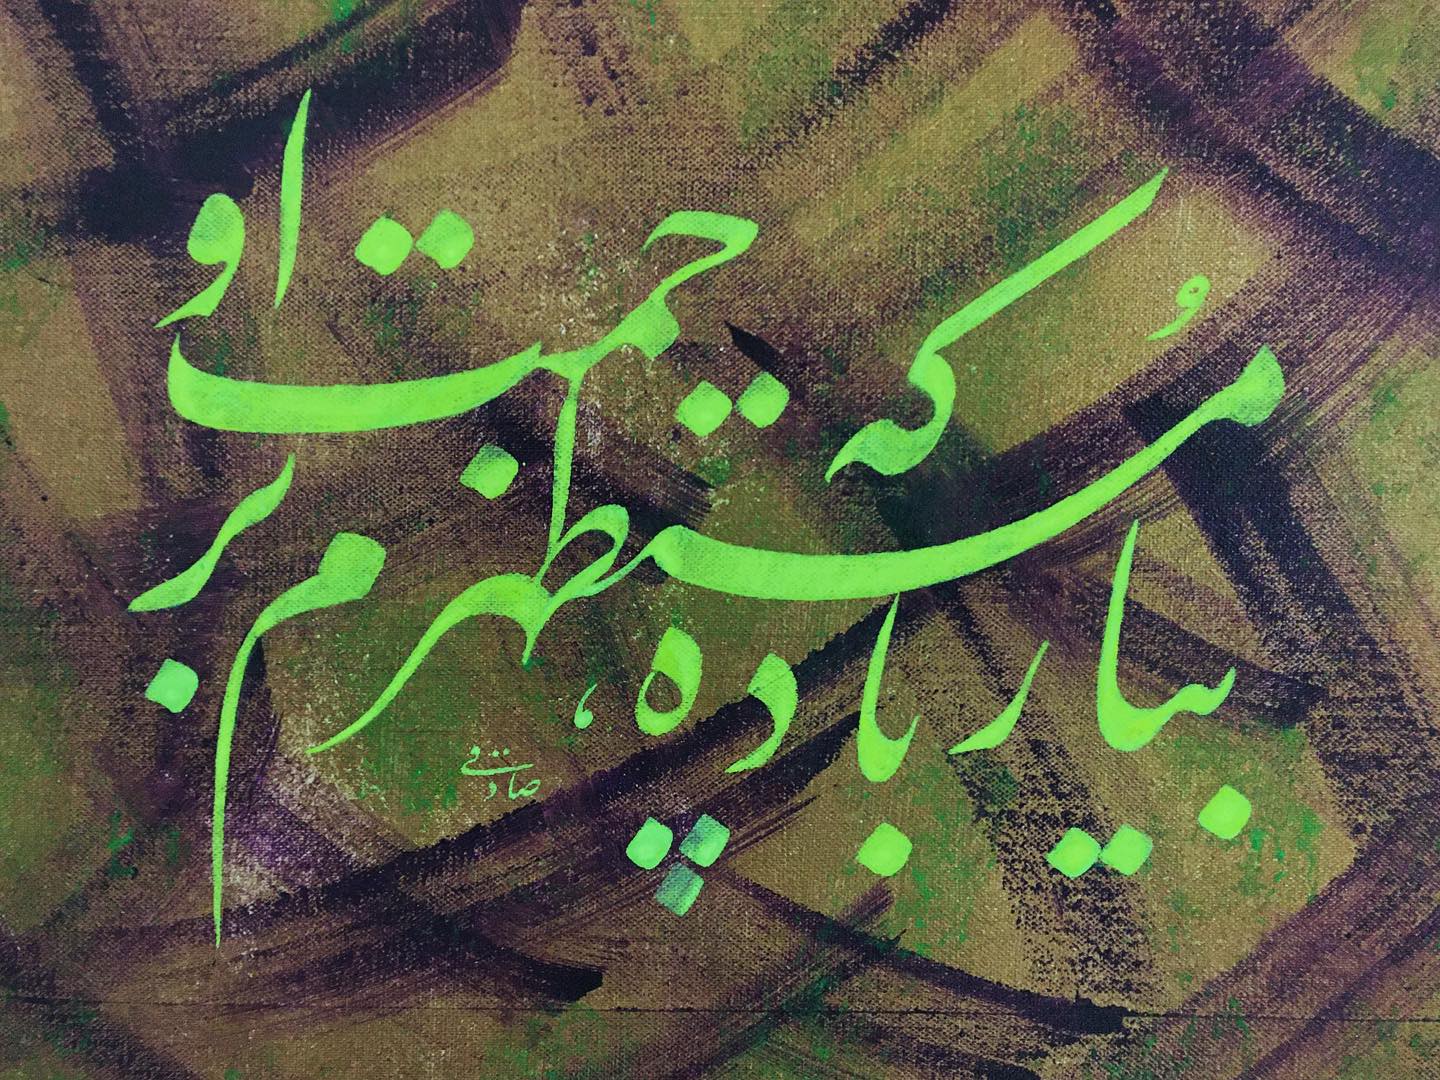 بیار باده،
که مُستظهرم
برحمت او
صادقی